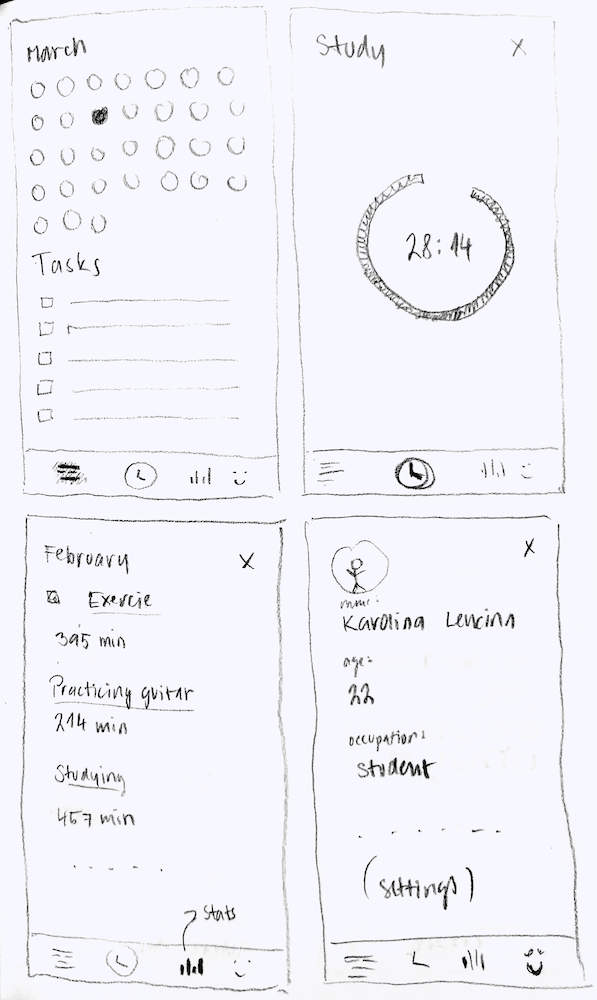 March
Tasks
Study X
28:14
February X
Exercie
395 min
Practicing guitar
214 min
Studying
457 min
stats
X
name:
Karolina
age:
22
occupation:
student
(settings)